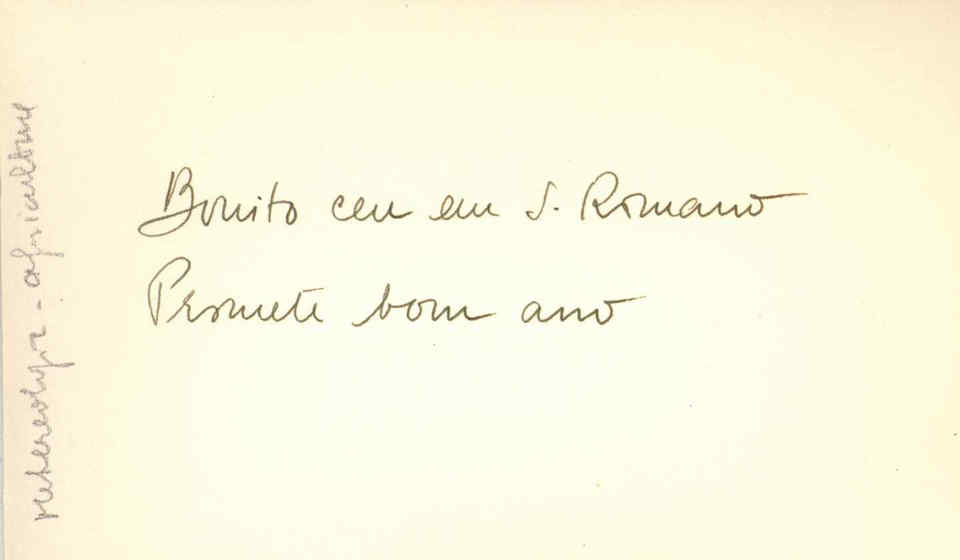 Bonito ceu em S. Romano
Promete bom ano
metereologia - agricultura